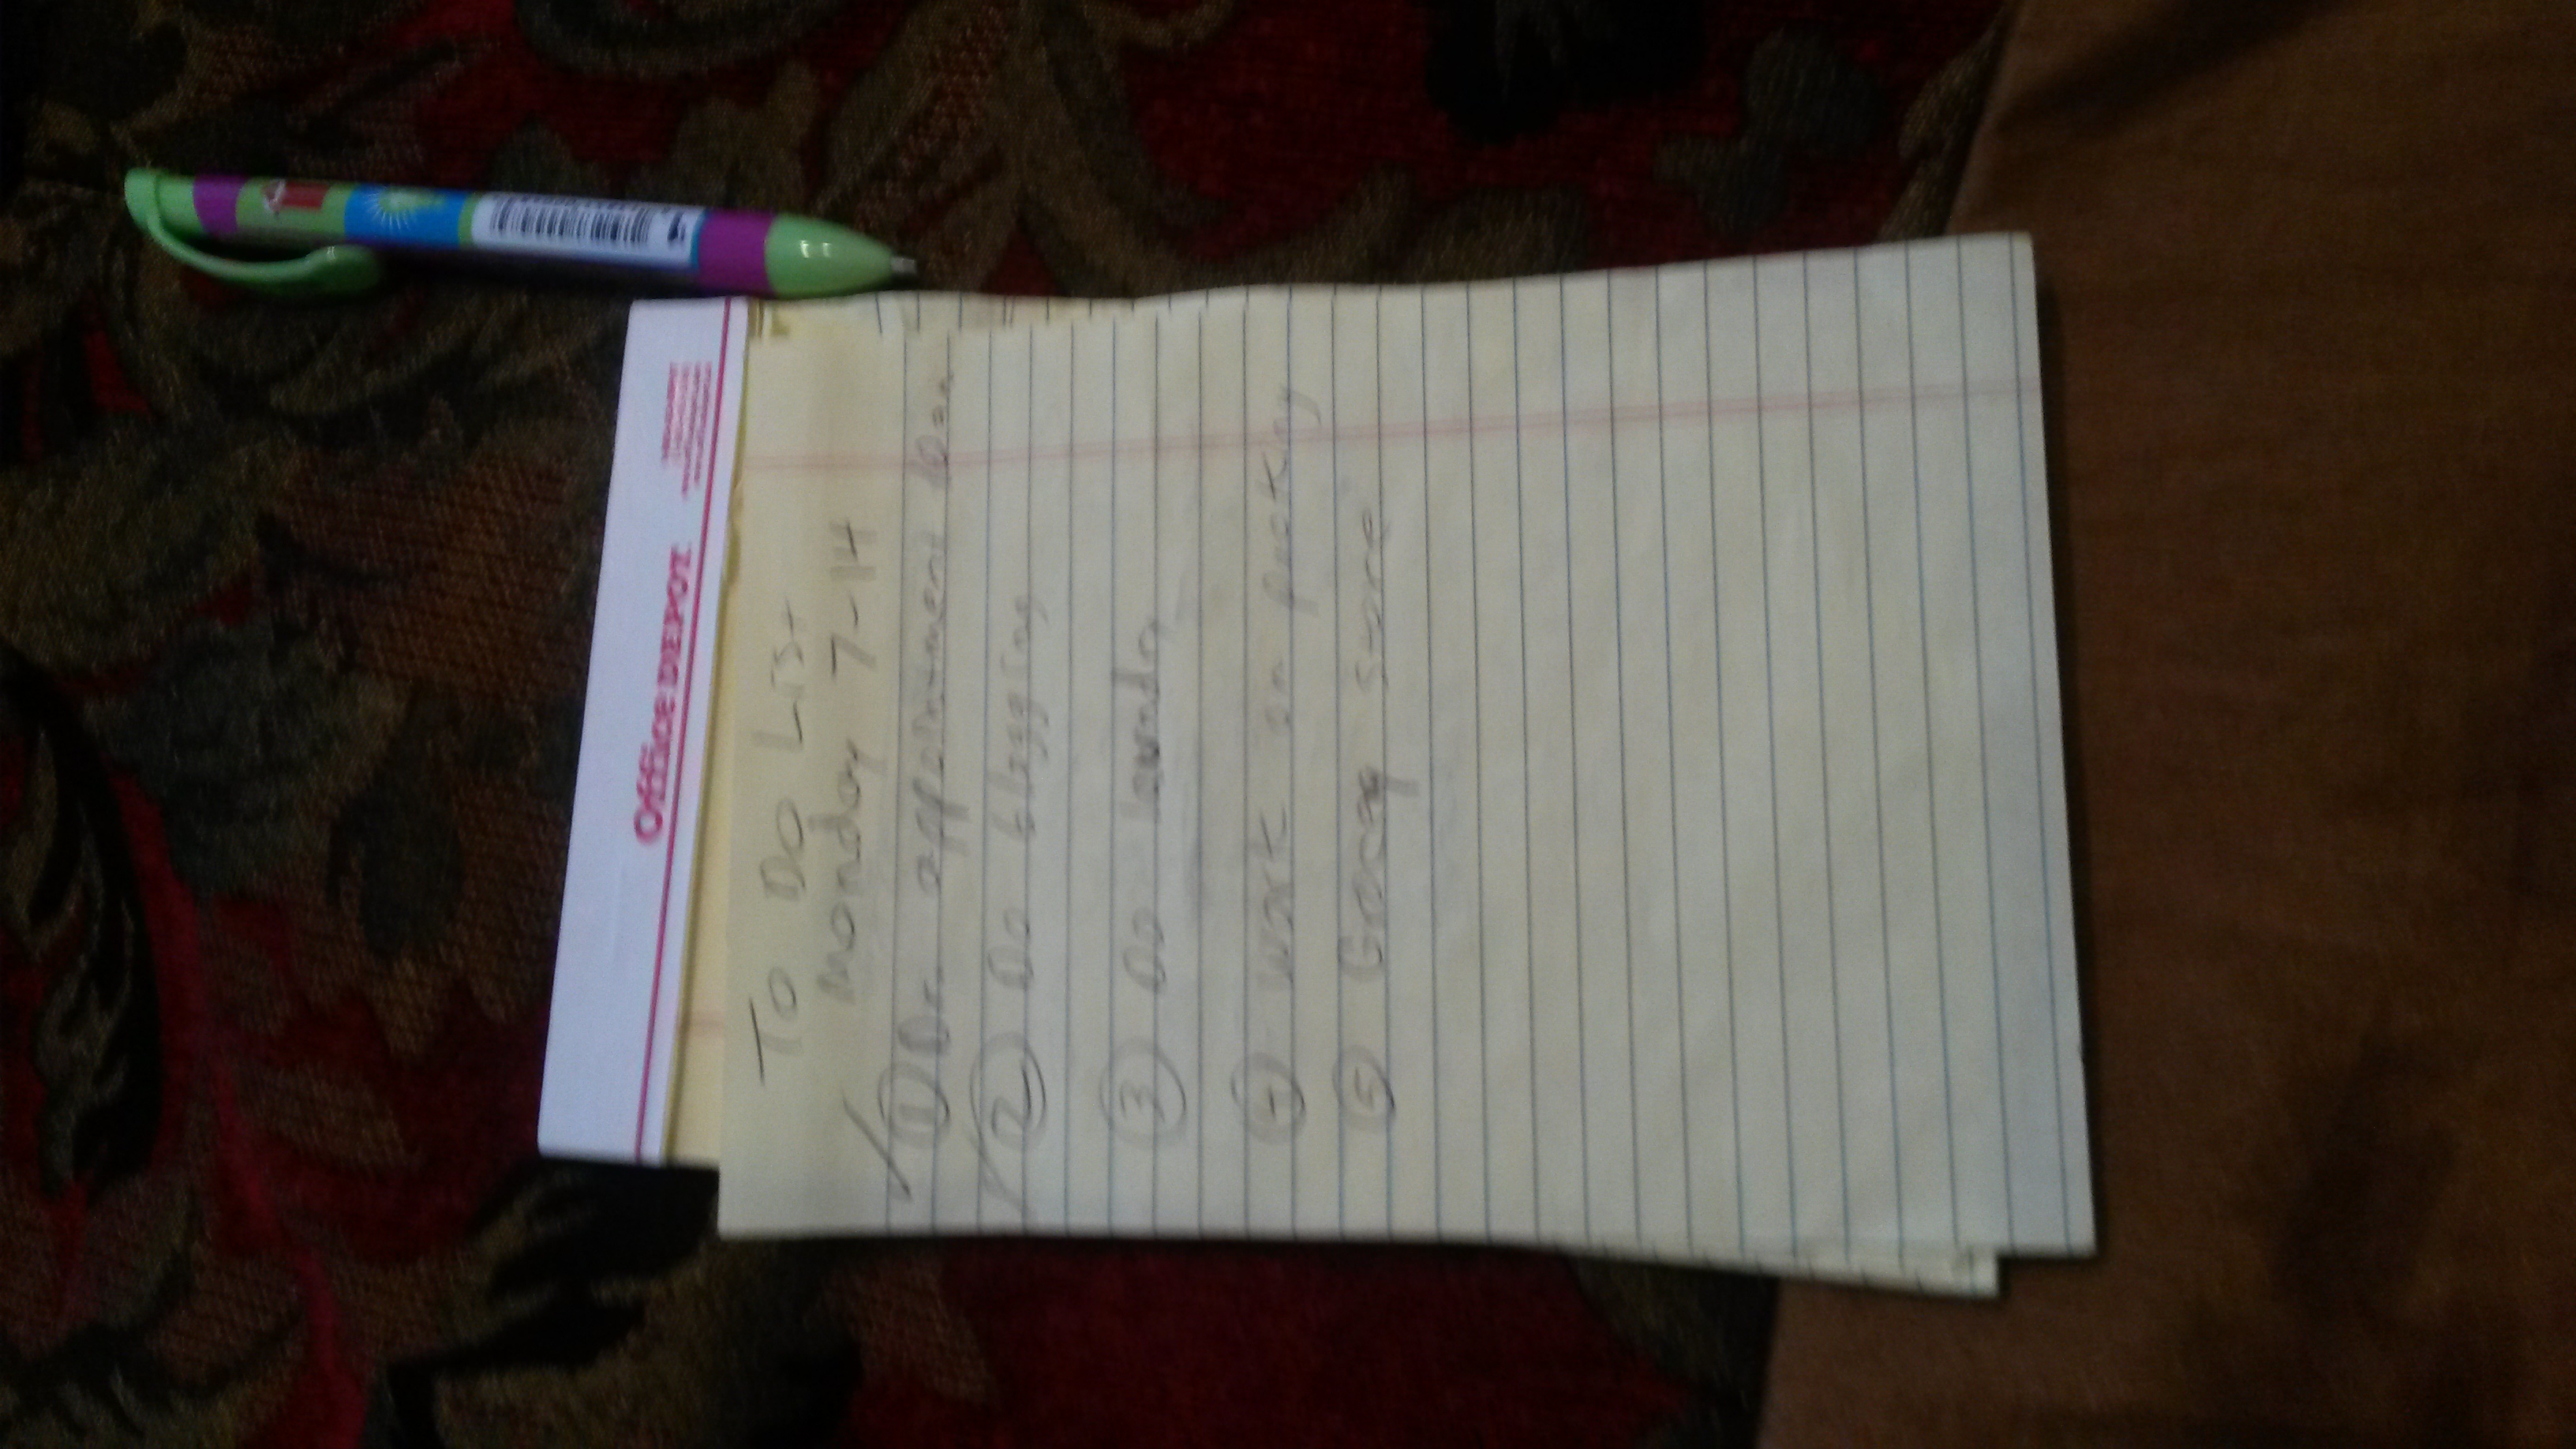 Office DEPOT
To Do List
Monday 7-14
1 Dr. appointment 10am
2 Do blogging
3 Do laundry
4 Work on packing
5 Grocery store